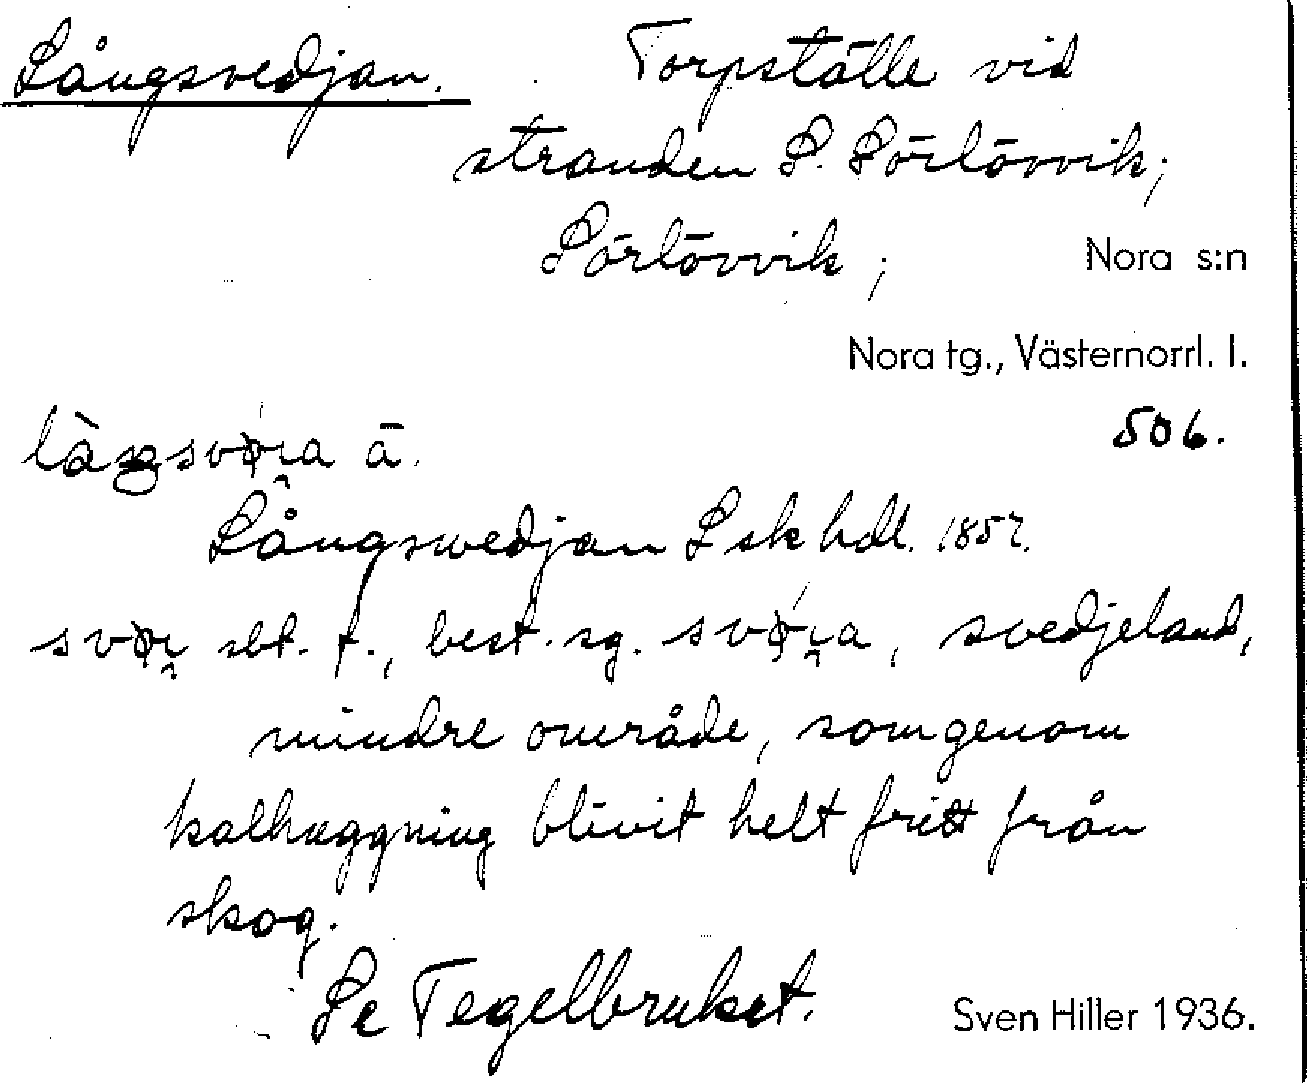 Långsvedjan. Torpställe vid
stranden S. Sörlövvik;
Sörlövvik; Nora s:n
Nora tg., Västernorrl. l.
506.
ā.
Långswedjan Lskhdl. 1857.
sbt. f., best. sg. , svedjeland,
mindre område, som genom
kalhuggning blivit helt fritt från
skog.
Se Tegelbruket. Sven Hiller 1936.